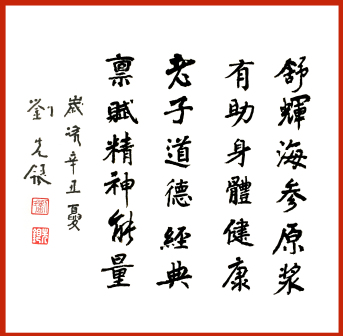 舒輝海参原浆
有助身體健康
老子道德經典
禀赋精神能量
歲次辛丑夏
劉先銀